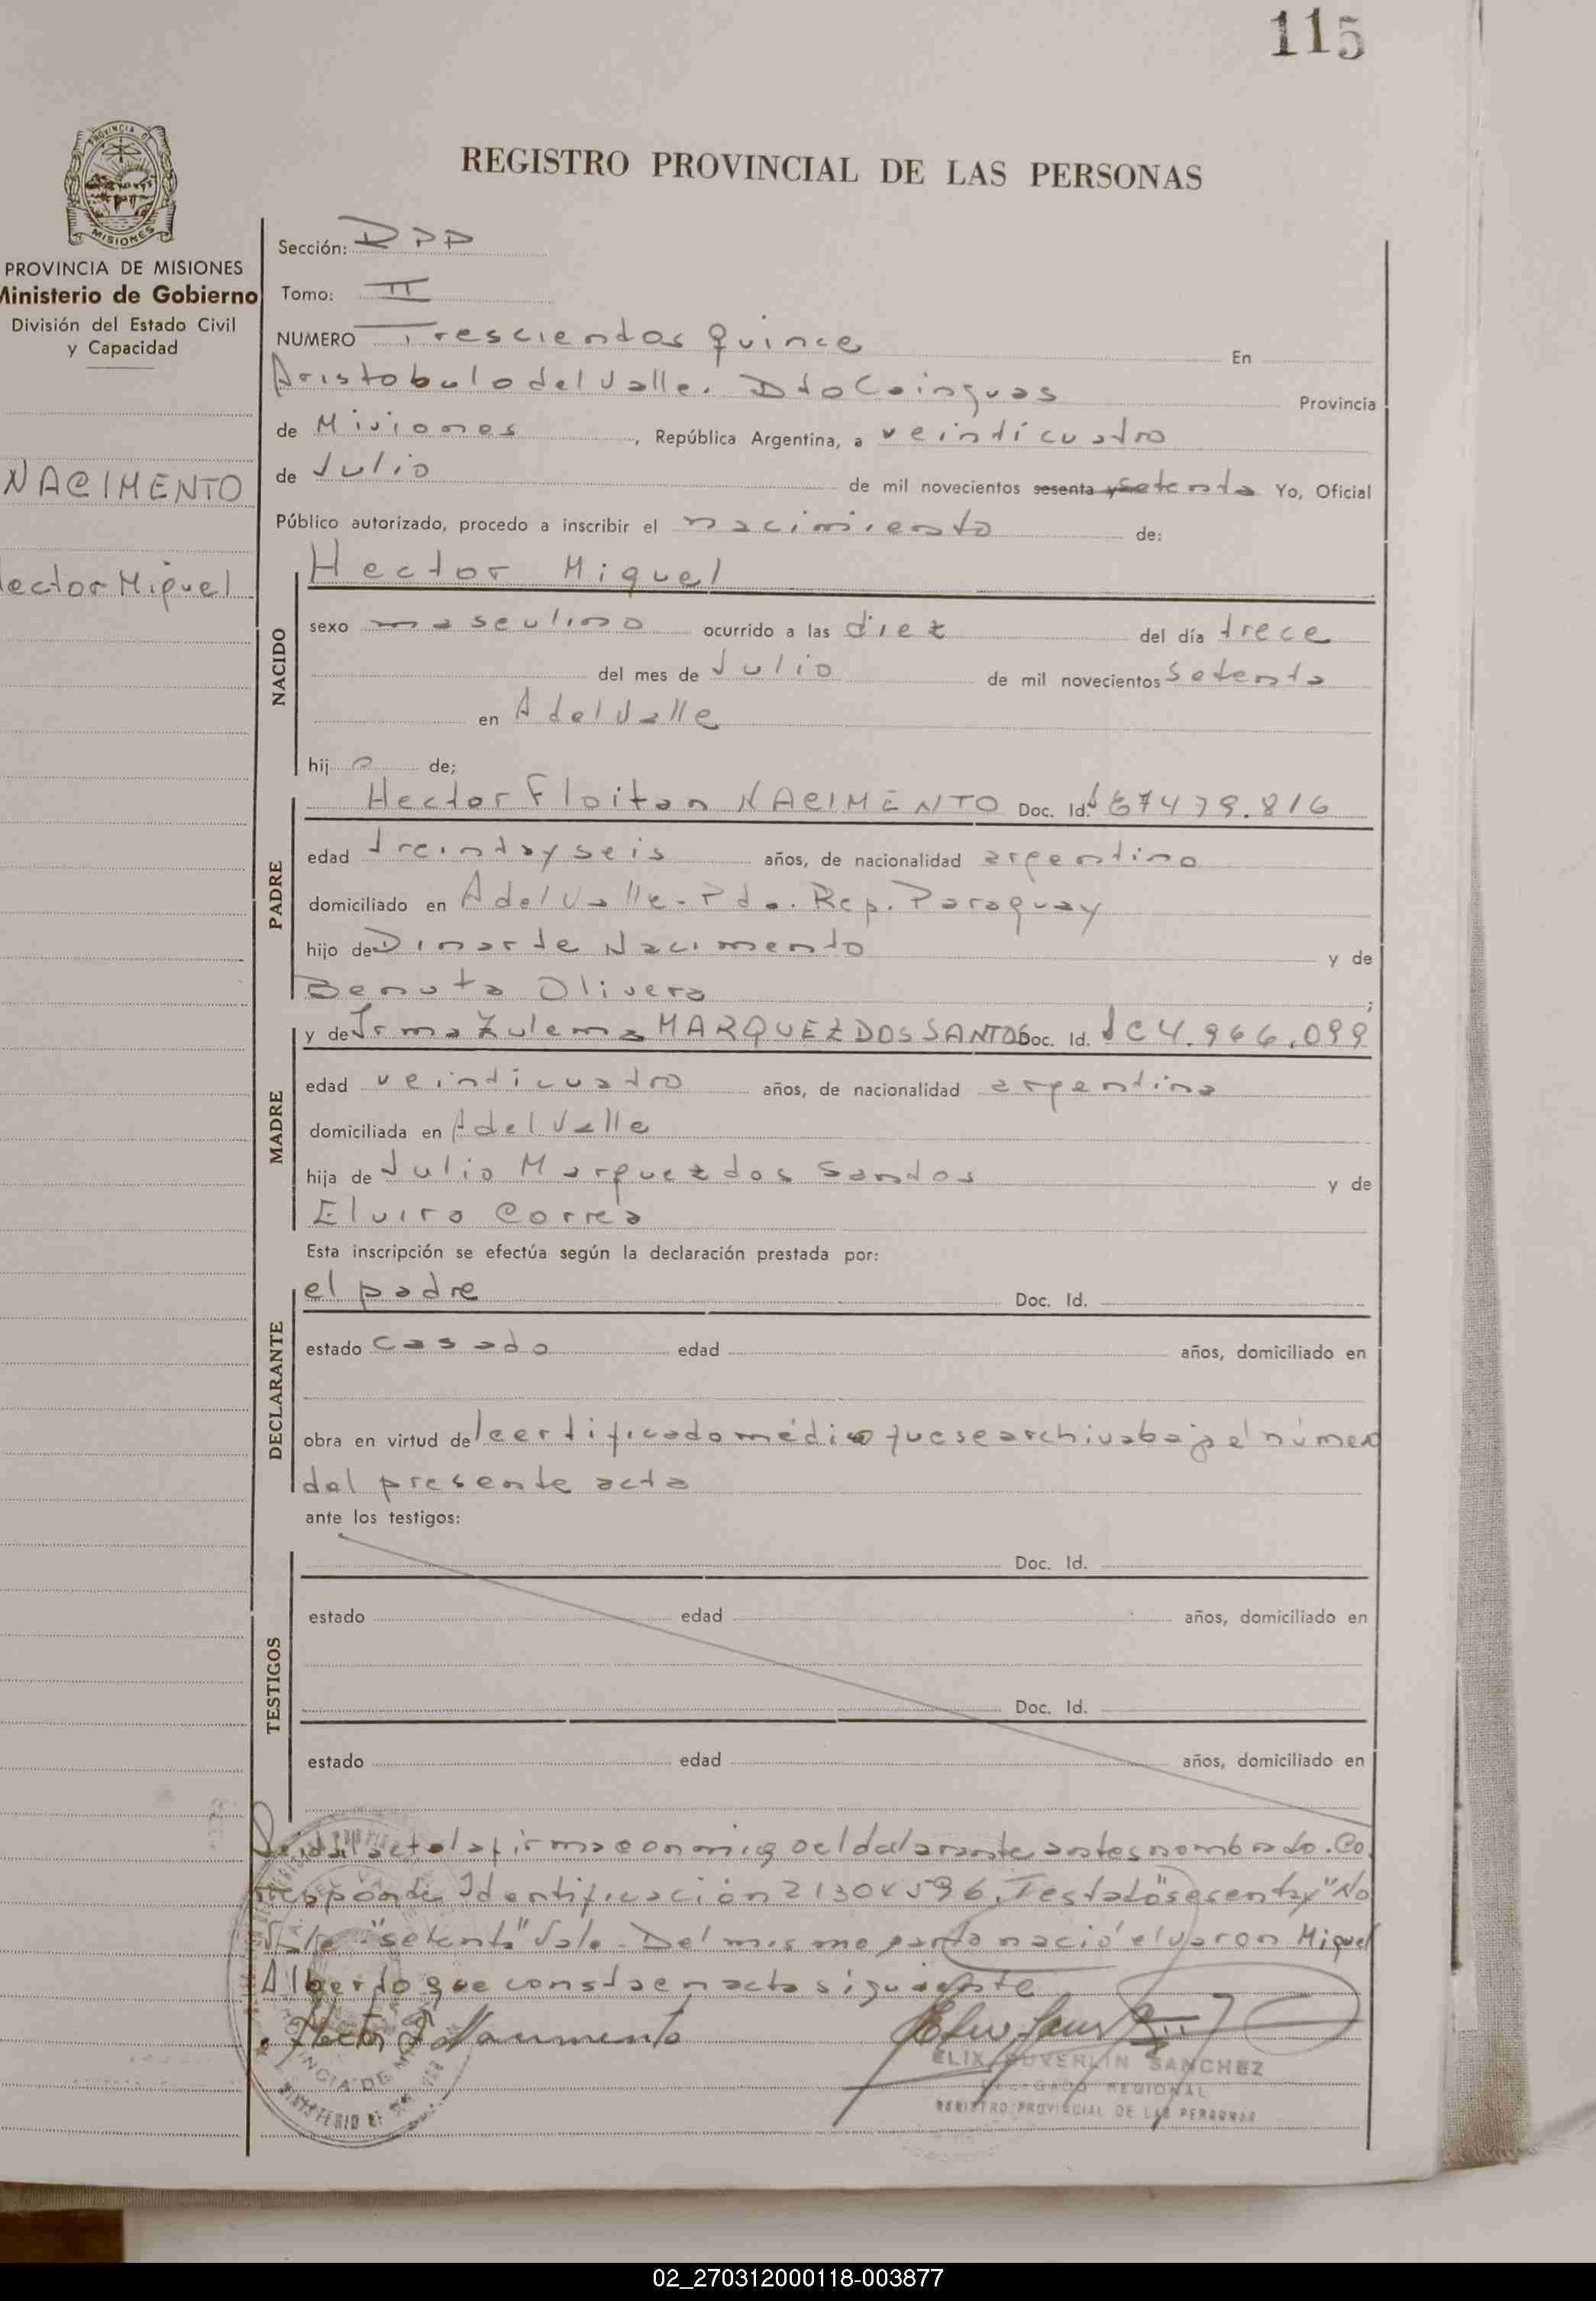 115
REGISTRO PROVINCIAL DE LAS PERSONAS
PROVINCIA DE MISIONES
Ministerio de Gobierno
División del Estado Civil
y Capacidad
NACIMENTO
ector Miguel
Sección:
Tomo: II
NUMERO Tresciendos quince En
Aristobulo del Valle. Dto Cainguas Provincia
de Misiones, República Argentina, a veindicuadro
de Julio de mil novecientos sesenta y setenta Yo, Oficial
Público autorizado, procedo a inscribir el nacimiento de:
NACIDO
Hector Miguel
sexo masculino ocurrido a las diez del día trece
del mes de Julio de mil novecientos setenta
en A del Valle
hijo de;
PADRE
Hector Floitan NACIMENTO Doc. Id. 7479.816
edad treintayseis años, de nacionalidad argentino
domiciliado en A del Valle - Pdo. Rep. Paraguay
hijo de Dinarte Nacimento y de
Olivera ;
MADRE
y de Irma Zulema MARQUEZ DOS SANTOS Doc. Id. 4.966.099
edad veindicuadro años, de nacionalidad argentina
domiciliada en A del Valle
hija de Julio Marquez dos Santos y de
Elvira Correa
Esta inscripción se efectúa según la declaración prestada por:
DECLARANTE
el padre Doc. Id.
estado casado edad años, domiciliado en
obra en virtud del certificado médico que se archiva bajo el número
del presente acta
ante los testigos:
TESTIGOS
Doc. Id.
estado edad años, domiciliado en
Doc. Id.
estado edad años, domiciliado en
Leida el acta la firma conmigo el declarante antes nombrado. Co
rresponde Identificación 21304596. Testado "sesenta y" No
Vale - "setenta" Vale - Del mismo parto nació el varon Miguel
Alberto que consta en acta siguiente
Hector F Nacimento
ELIX DUVERLIN SANCHEZ
DELEGADO REGIONAL
REGISTRO PROVINCIAL DE LAS PERSONAS
02_270312000118-003877